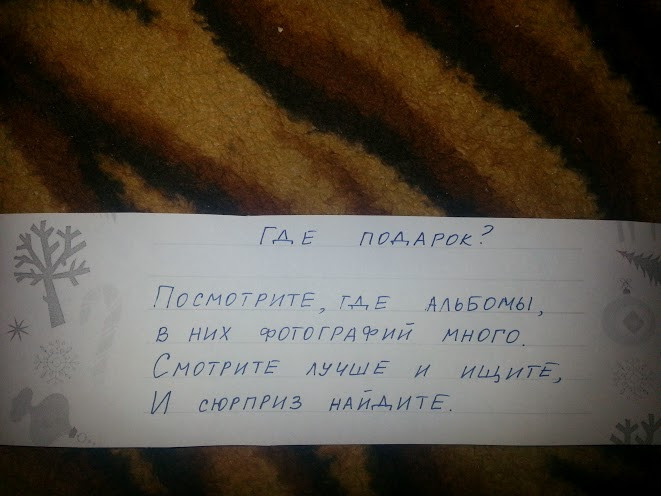 Где подарок?
Посмотрите, где альбомы,
в них фотографий много.
Смотрите лучше и ищите,
И сюрприз найдите.